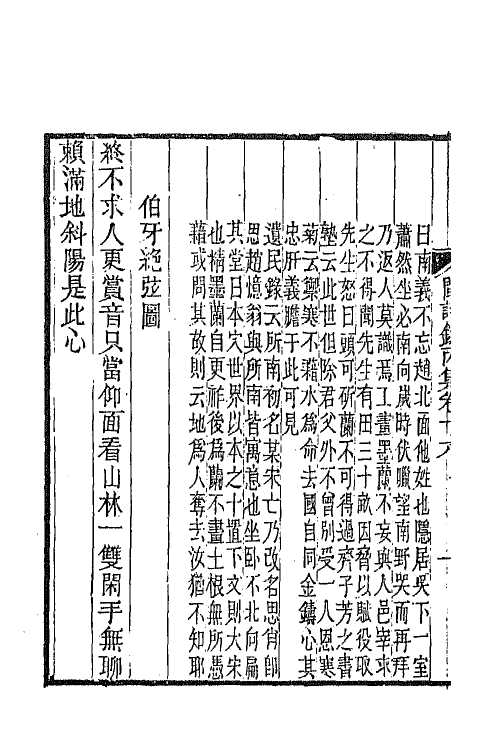 日南義不忘趙北面他姓也隱居吳下一室
蕭然坐必南向歲時伏臘望南野哭而再拜
乃返人莫識焉工畫墨蘭不妄與人邑宰求
之不得聞先生有田三十畝因脅以賦役取
先生怒曰頭可斫蘭不可得過齊子芳之書
塾云此世但除君父外不曾別受一人恩寒
菊云禦寒不藉水為命去國自同金鑄心其
忠肝義膽于此可見
遺民錄云所南初名某宋亡乃改名思肖即
思趙憶翁與所南皆寓意也坐臥不北向扁
其堂曰本穴世界以本之十置下文則大宋
也精墨蘭自更祚後為蘭不畫土根無所憑
藉或問其故則云地為人奪去汝猶不知耶
伯牙絕弦圖
終不求人更賞音只當仰面看山林一雙閑手無聊
賴滿地斜陽是此心